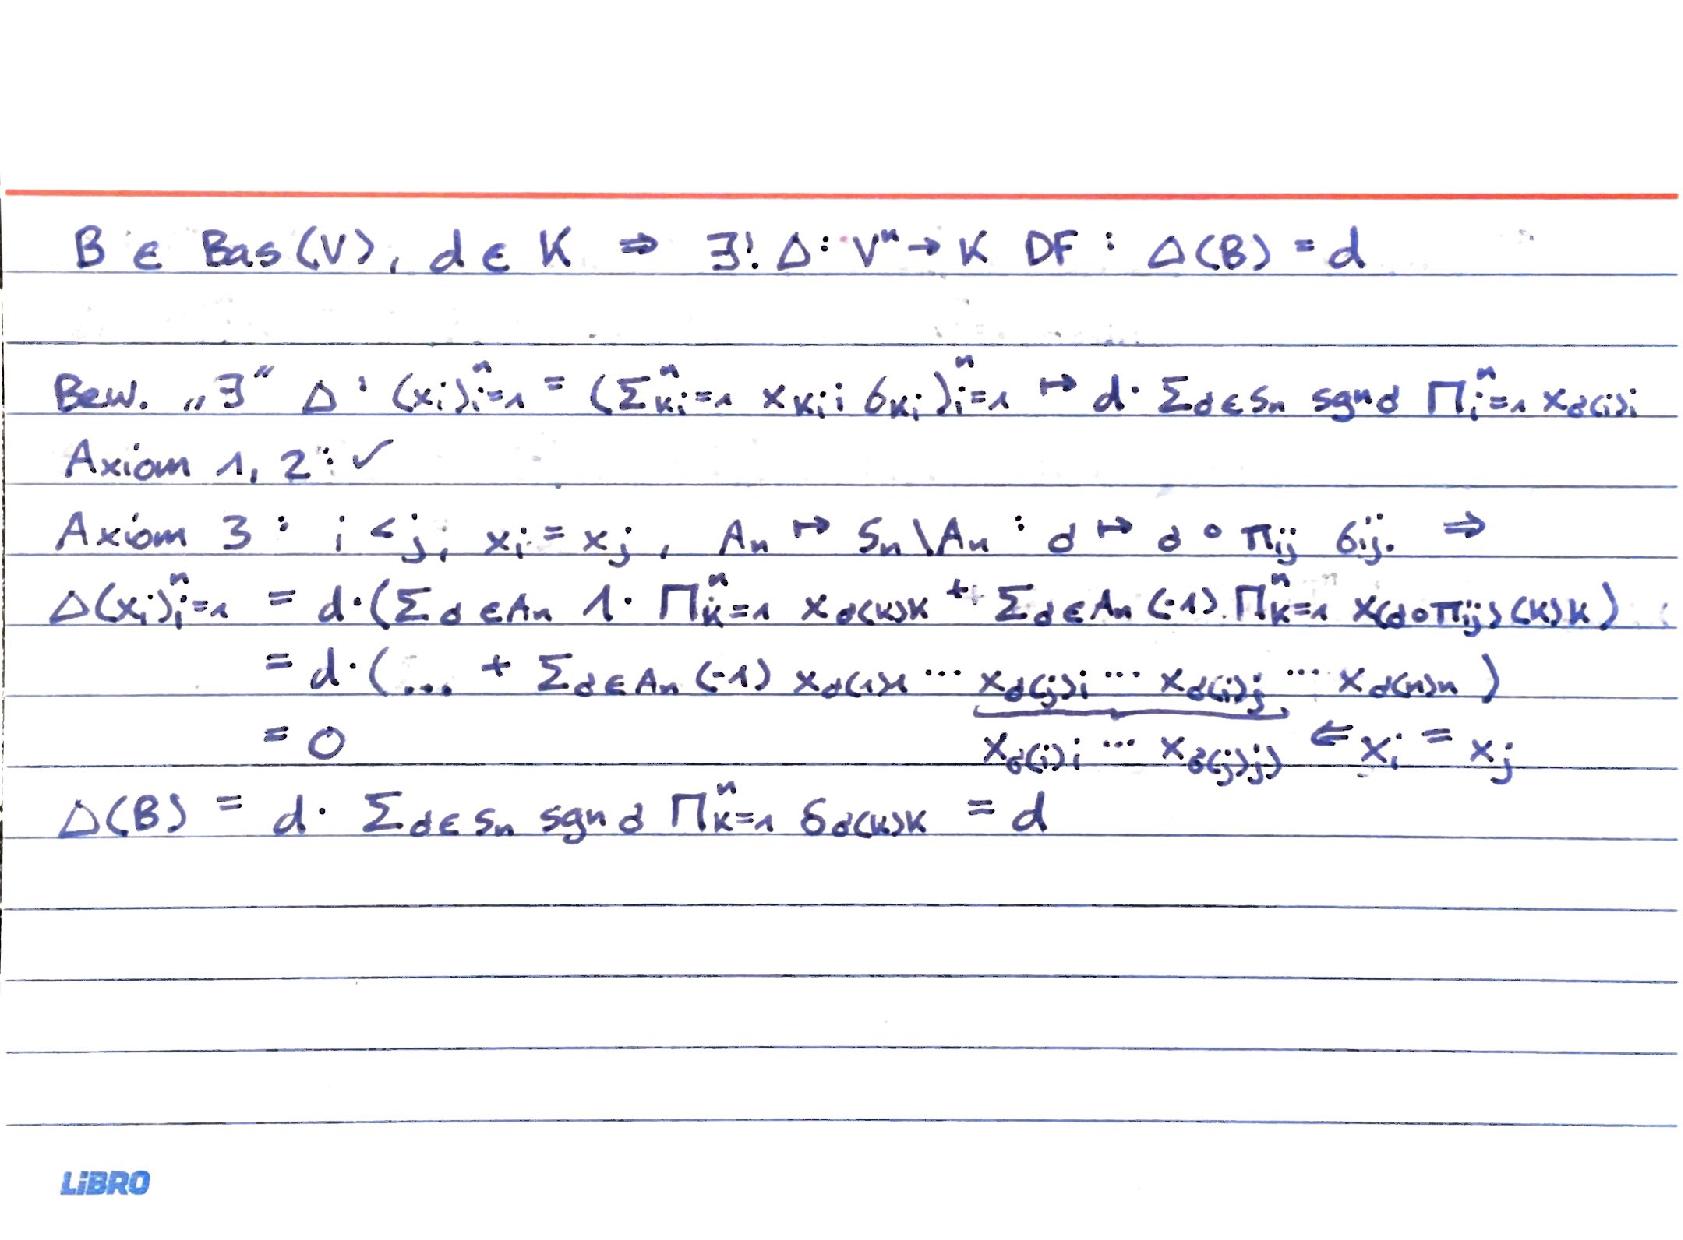 B ∈ Bas(V), d ∈ K ⇒ ∃! Δ: Vⁿ → K DF : Δ(B) = d
Bew. „∃“ Δ : (x_i)_{i=1}^n = (Σ_{k_i=1}^n x_{k_i i} b_{k_i})_{i=1}^n ↦ d · Σ_{σ∈S_n} sgn σ Π_{i=1}^n x_{σ(i)i}
Axiom 1, 2 : ✓
Axiom 3 : i < j, x_i = x_j, A_n ↦ S_n \ A_n : σ ↦ σ ∘ π_{ij} bij. ⇒
Δ(x_i)_{i=1}^n = d·(Σ_{σ∈A_n} 1· Π_{k=1}^n x_{σ(k)k} + Σ_{σ∈A_n} (-1) Π_{k=1}^n x_{(σ∘π_{ij})(k)k})
= d·(... + Σ_{σ∈A_n} (-1) x_{σ(1)1} ... x_{σ(j)i} ... x_{σ(i)j} ... x_{σ(n)n})
= 0 x_{σ(i)i} ... x_{σ(j)j)} ⇐ x_i = x_j
Δ(B) = d · Σ_{σ∈S_n} sgn σ Π_{k=1}^n δ_{σ(k)k} = d
LiBRO